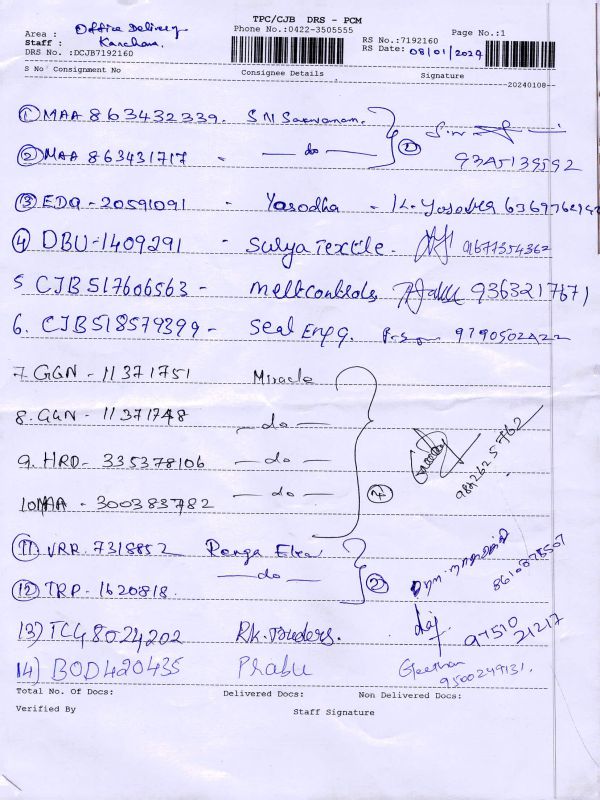 TPC/CJB DRS - PCM
Area : Office Delivery Phone No.:0422-3505555 RS No.:7192160 Page No.:1
Staff : Kanchana. RS Date: 08/01/2024
DRS No. :DCJB7192160
S No Consignment No Consignee Details Signature
20240108
1 MAA 863432339. S N Saravanan.
2 MAA 863431717 - do - 2 9345139592
3 EDQ - 20591091 - Yasodha - K. Yasodha
4 DBU-1409291 - Surya Textile. 9677354362
5 CJB517606563 - Meltcontrols, 9363217671
6. CJB518579399 - Seal Engg. 9790502422
7. GGN - 11371751 Miracle
8. GGN - 11371748 - do -
9. HRD - 335378106 - do - 4
10 MAA - 300383782 - do - 9842625762
11 VRR. 7318852 Ranga Elec
12 TRP - 1620818. - do - 2
13) TCG 8024202 R.K. Traders. 97510 21217
14) BOD420435 Prabu Geethan 9500249131.
Total No. Of Docs: Delivered Docs: Non Delivered Docs:
Verified By Staff Signature